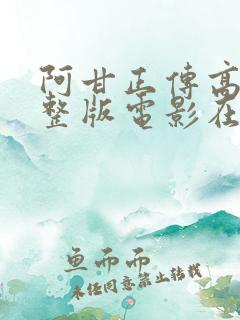 阿甘正傳高
整版電影在
鱼而而
未经同意禁止转载